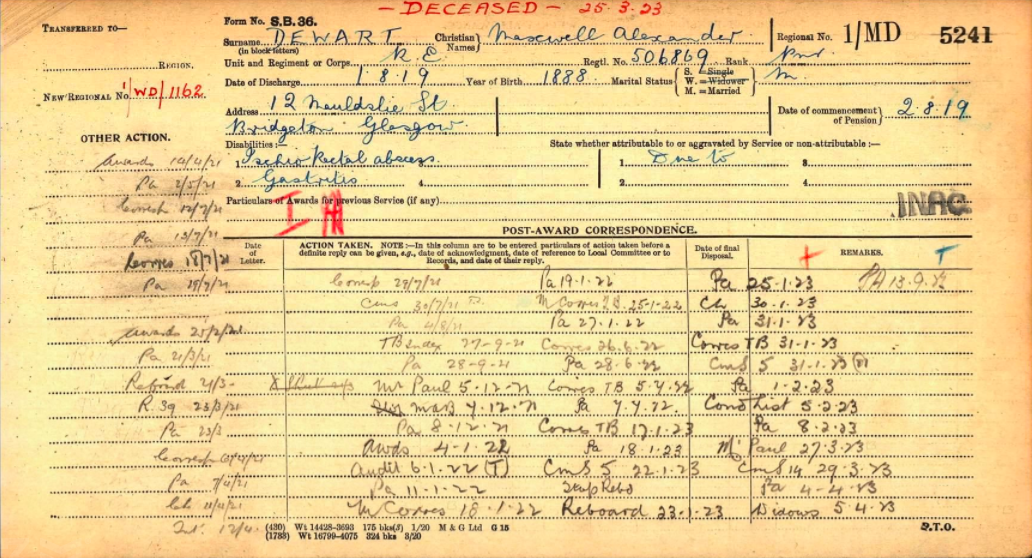 — DECEASED — 25.3.23
TRANSFERRED TO—
REGION.
NEW REGIONAL No. WD/1162
Form No. S.B. 36.
Surname (in block letters) DEWART Christian Names Maxwell Alexander Regional No. 1/MD 5241
Unit and Regiment or Corps R.E Regtl. No. 506869 Rank Pnr
Date of Discharge 1.8.19 Year of Birth 1888 Marital Status S. = Single W. = Widower M. = Married M
Address 12 Mauldslie St. Date of commencement of Pension 2.8.19
Bridgeton Glasgow.
Disabilities :— State whether attributable to or aggravated by Service or non-attributable :—
1. Ischio Rectal abscess. 3. 1. Due to 3.
2. Gastritis 4. 2. 4.
Particulars of Awards for previous Service (if any)
POST-AWARD CORRESPONDENCE.
OTHER ACTION.
Awards 14/4/21
Pa 2/5/21
Corresp 12/7/21
Pa 13/7/21
Corres 18/7/21
Pa
Awards 25/2/21
Pa 21/3/21
21/3
R. 39 23/3/21
Pa 23/3
Corresp
Pa 7/4/21
11/4/21
12/4.
Date of Letter.
ACTION TAKEN. NOTE :—In this column are to be entered particulars of action taken before a definite reply can be given, e.g., date of acknowledgment, date of reference to Local Committee or to Records, and date of their reply.
Date of final Disposal.
REMARKS.
Corresp 29/7/21 Pa 19.1.22 Pa 25.1.23 PA 13.9.23
Cms 30/7/21 M Corres 25-1-22 Ch 30.1.23
Pa 4/8/21 Pa 27.1.22 Pa 31.1.23
TB index 27-9-21 Corres 26.6.22 Corres TB 31.1.23
Pa 28-9-21 Pa 28.6.22 Cms 5 31.1.23
Mr Paul 5.12.21 Corres TB 5.7.22 Pa 1-2.23
7.12.21 Pa 7.7.22. List 5.2.23
Pa 8.12.21 Corres TB 17.1.23 Pa 8.2.23
Awds 4-1.22 Pa 18.1.23 Mr Paul 27.3.23
Audit 6.1.22 (T) Cms 5 22.1.23 Cms 14 29.3.23
Pa 11.1.22 Pa 4-4.23
M Corres 18.1.22 Reboard 23.1.23 Widows 5.4.23
(430) Wt 14428-3693 175 bks(3) 1/20 M & G Ltd G 15
(1733) Wt 16799-4075 324 bks 3/20
P.T.O.